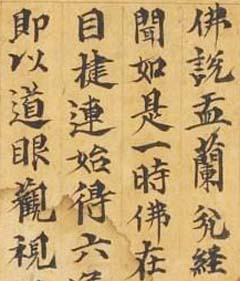 佛說盂蘭盆経
聞如是一時佛在
目揵連始得六
即以道眼觀視